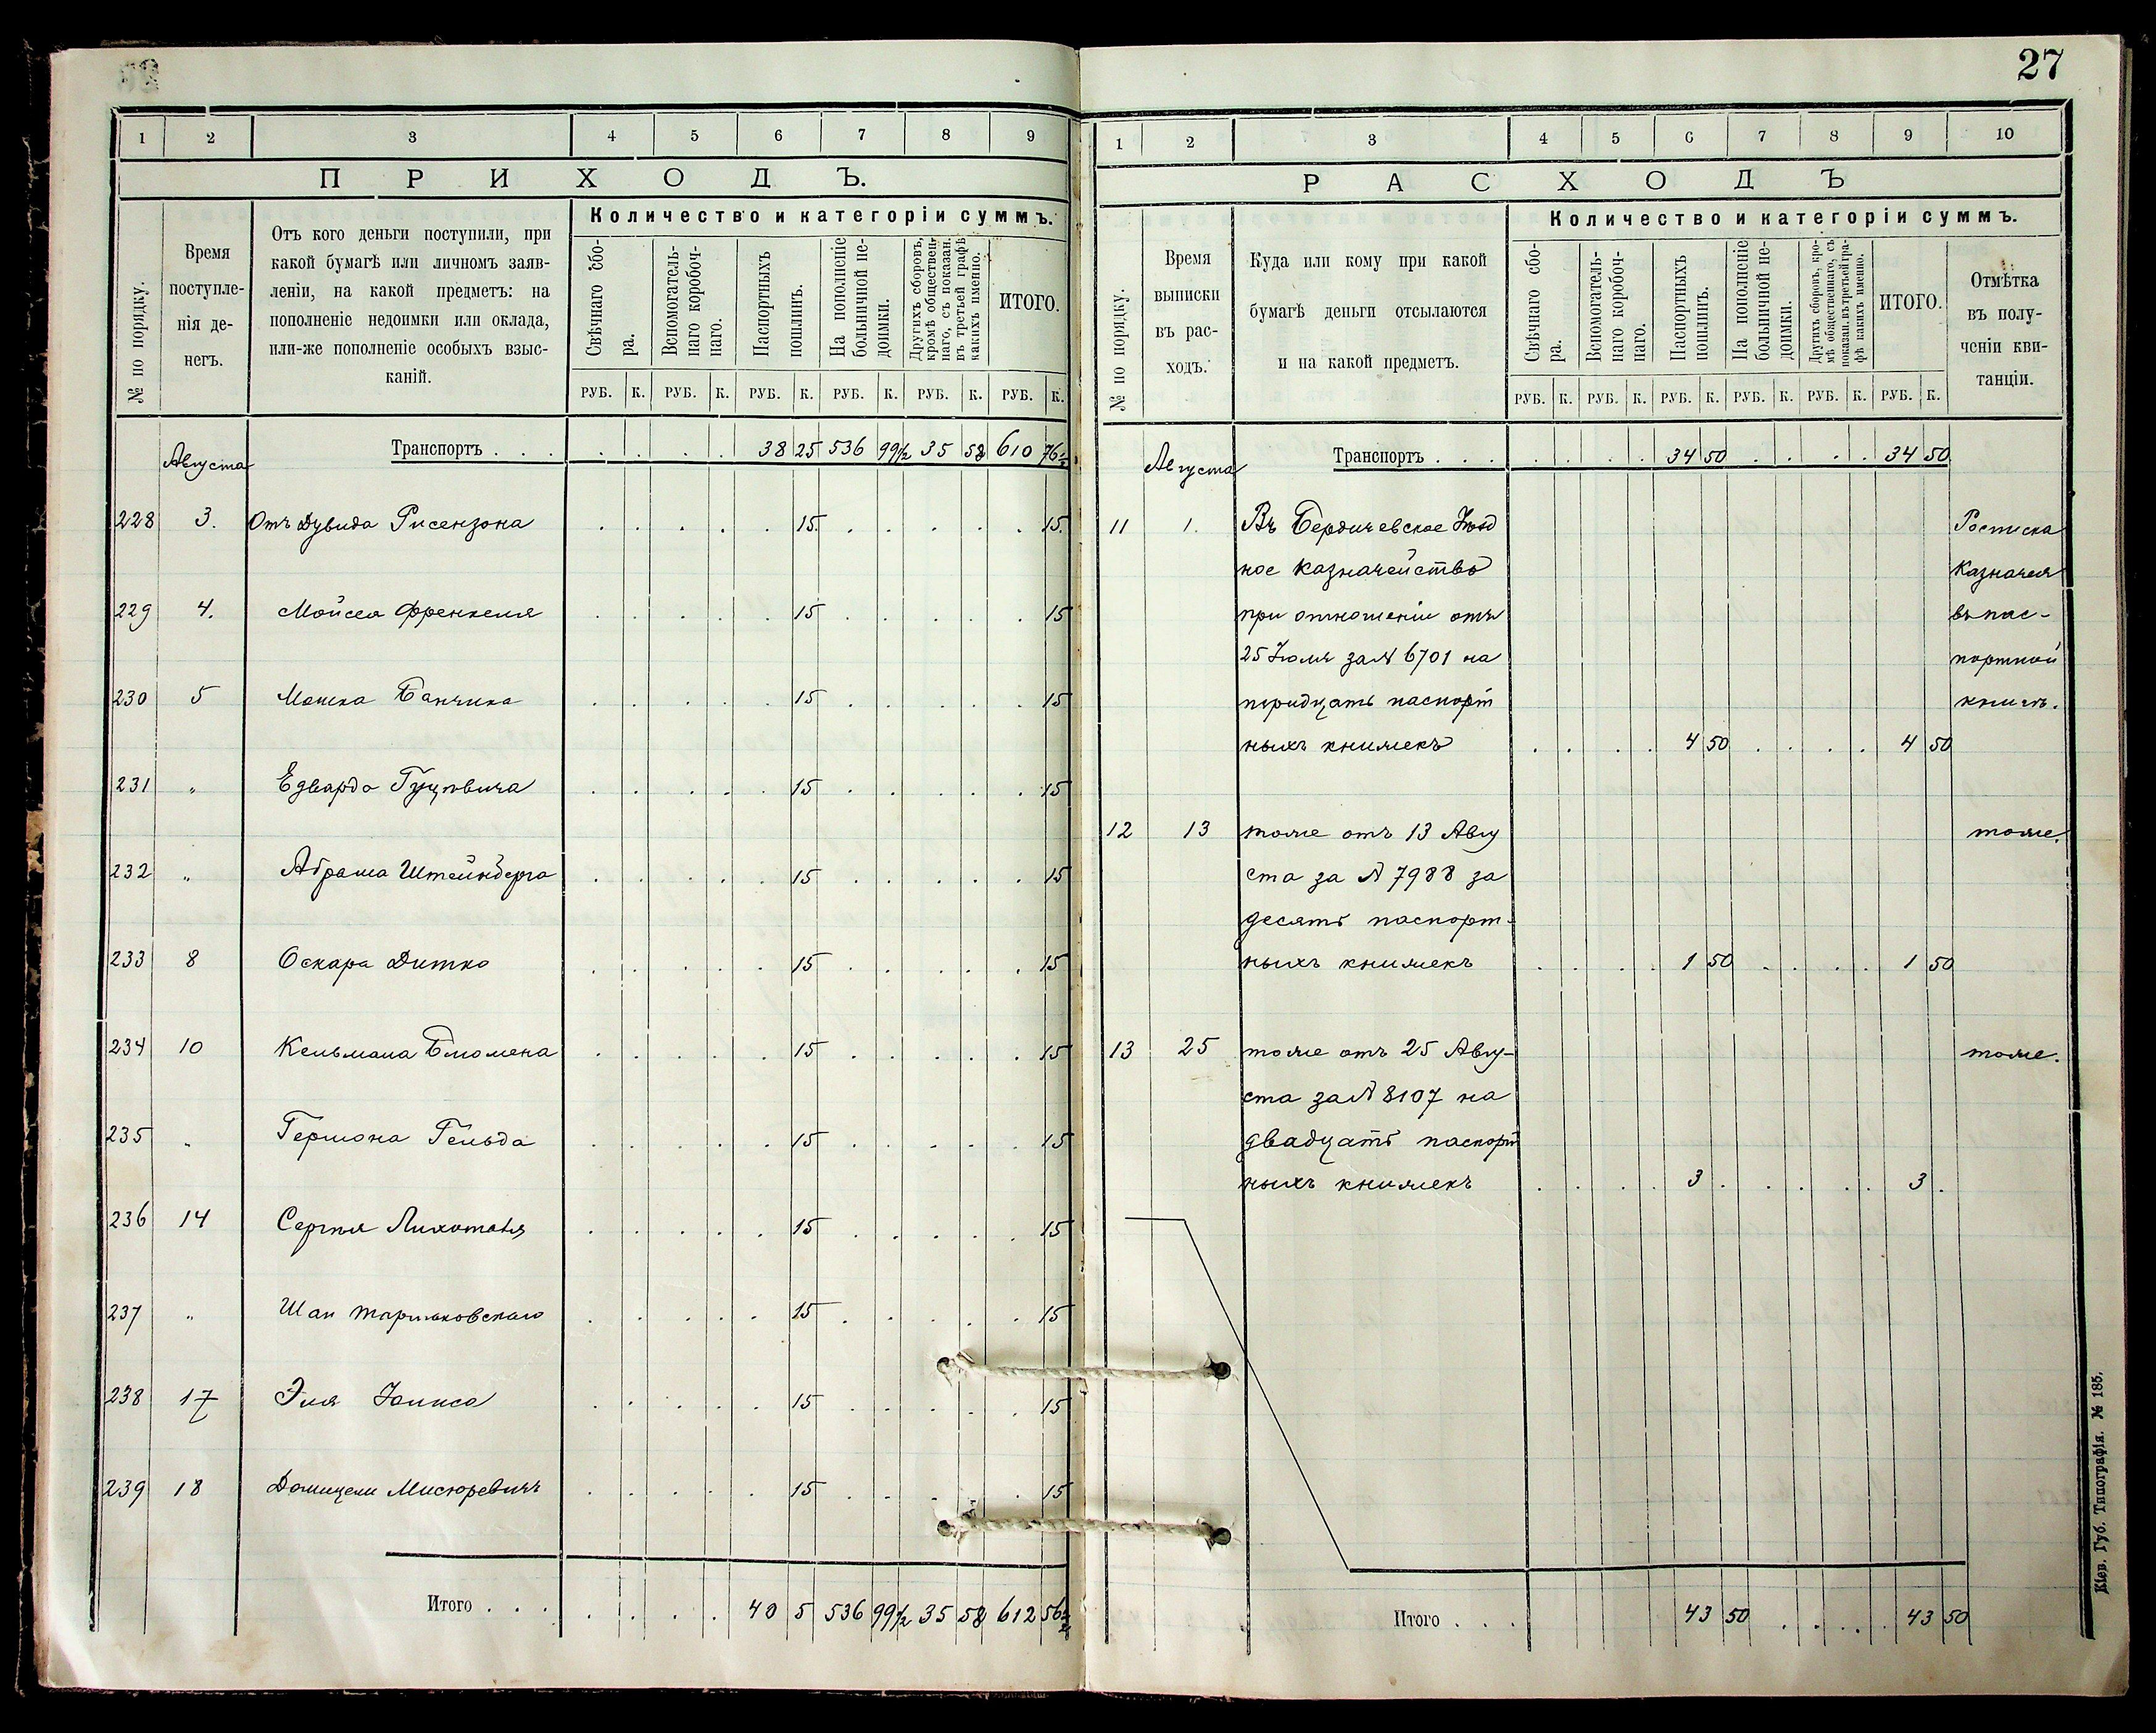 27
1 2 3 4 5 6 7 8 9
ПРИХОДЪ.
№ по порядку.
Время поступле-
нія де-
негъ.
Отъ кого деньги поступили, при
какой бумагѣ или личномъ заяв-
леніи, на какой предметъ: на
пополненіе недоимки или оклада,
или-же пополненіе особыхъ взыс-
каній.
Количество и категоріи суммъ.
Свѣчнаго сбо-
ра.
Вспомогатель-
наго коробоч-
наго.
Паспортныхъ
пошлинъ.
На пополненіе
больничной не-
доимки.
Другихъ сборовъ,
кромѣ обществен-
наго, съ показан.
въ третьей графѣ
какихъ именно.
ИТОГО.
РУБ. К. РУБ. К. РУБ. К. РУБ. К. РУБ. К. РУБ. К.
Августа Транспортъ . . . 38 25 536 99½ 35 58 610 76½
228 3. Отъ Дувида Рисензона 15. 15.
229 4. Мойсея Френкеля 15 15
230 5 Мошка Банчика 15 15
231 " Едварда 15 15
232 " Абрама Штейнберга 15 15
233 8 Оскара Дитко 15 15
234 10 Кельмана Блюмена 15 15
235 " Германа Гельда 15 15
236 14 Сергѣя 15 15
237 " 15 15
238 17 Эля 15 15
239 18 Мисюревичъ 15 15
Итого . . . 40 5 536 99½ 35 58 612 56½
1 2 3 4 5 6 7 8 9 10
РАСХОДЪ
№ по порядку.
Время
выписки
въ рас-
ходъ.
Куда или кому при какой
бумагѣ деньги отсылаются
и на какой предметъ.
Количество и категоріи суммъ.
Свѣчнаго сбо-
ра.
Вспомогатель-
наго коробоч-
наго.
Паспортныхъ
пошлинъ.
На пополненіе
больничной не-
доимки.
Другихъ сборовъ, кро-
мѣ общественнаго, съ
показан. въ третьей гра-
фѣ какихъ именно.
ИТОГО.
Отмѣтка
въ полу-
ченіи кви-
танціи.
РУБ. К. РУБ. К. РУБ. К. РУБ. К. РУБ. К. РУБ. К.
Августа Транспортъ . . . 34 50 34 50
11 1. Въ Бердичевское Уѣзд Росписка
ное казначейство казначея
при отношеніи отъ въ пас-
25 Іюля за № 6701 на портной
тридцать паспорт книгѣ.
ныхъ книжекъ 4 50 4 50
12 13 тоже отъ 13 Авгу тоже.
ста за № 7988 за
десять паспорт-
ныхъ книжекъ 1 50 1 50
13 25 тоже отъ 25 Авгу- тоже.
ста за № 8107 на
двадцать паспорт
ныхъ книжекъ 3 . 3 .
Итого . . . 43 50 43 50
Кіев. Губ. Типографія. № 185.